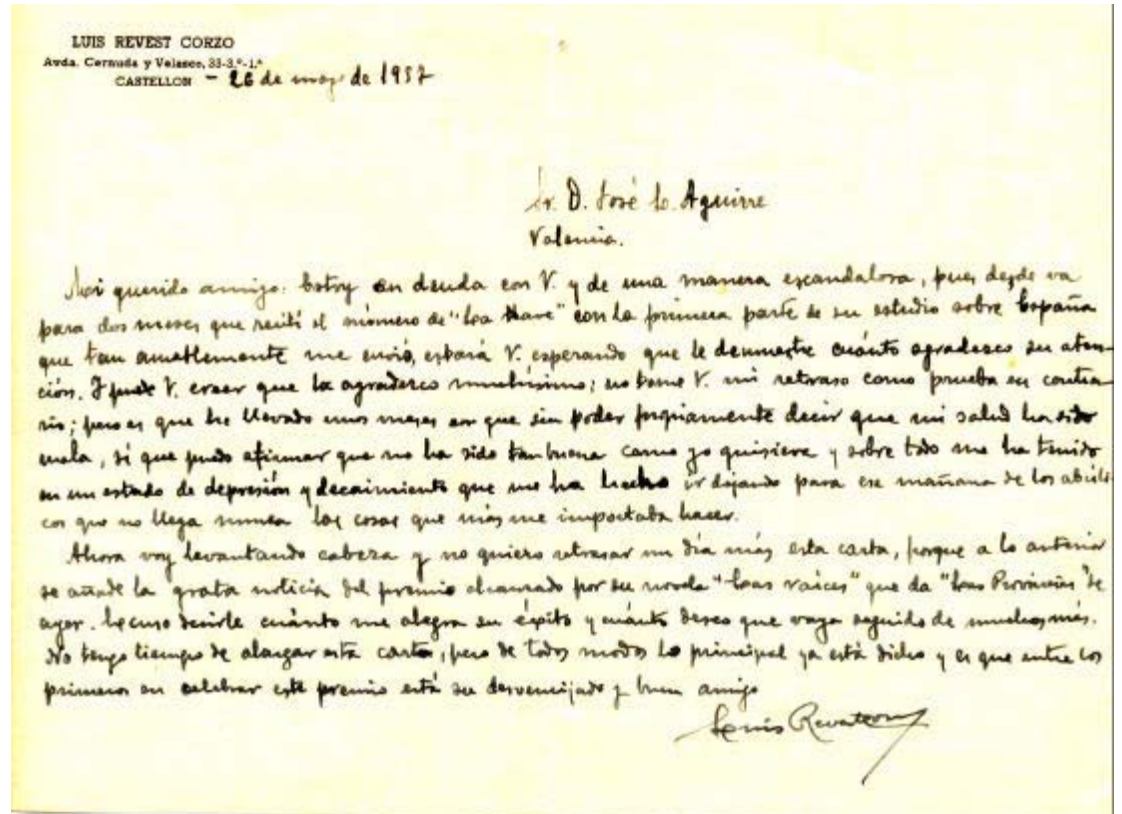 LUIS REVEST CORZO
Avda. Cernuda y Velasco, 33-3.º-1.ª
CASTELLON - 26 de mayo de 1957
Sr. D. José L. Aguirre
Valencia.
Mi querido amigo: Estoy en deuda con V. y de una manera escandalosa, pues desde va
para dos meses que recibí el número de "La Nave" con la primera parte de su estudio sobre España
que tan amablemente me envió, estará V. esperando que le demuestre cuánto agradezco su aten-
ción. Y puede V. creer que la agradezco muchísimo; no tome V. mi retraso como prueba en contra-
rio; pero es que he llevado unos meses en que sin poder propiamente decir que mi salud ha sido
mala, sí que puedo afirmar que no ha sido tan buena como yo quisiera y sobre todo me ha tenido
en un estado de depresión y decaimiento que me ha hecho ir dejando para ese mañana de los abúli-
cos que no llega nunca las cosas que más me importaba hacer.
Ahora voy levantando cabeza y no quiero retrasar un día más esta carta, porque a lo anterior
se añade la grata noticia del premio alcanzado por su novela "Las raíces" que da "Las Provincias" de
ayer. Excuso decirle cuánto me alegra su éxito y cuánto deseo que vaya seguido de muchos más.
No tengo tiempo de alargar esta carta, pero de todos modos lo principal ya está dicho y es que entre los
primeros en celebrar este premio está su desvencijado y buen amigo
Luis Revest Corzo